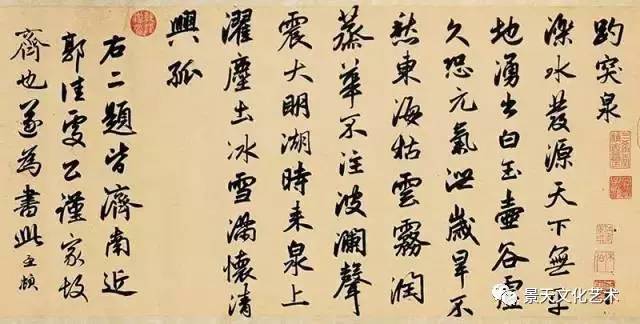 趵突泉
濼水發源天下無平
地湧出白玉壺谷虛
久恐元氣泄歲旱不
愁東海枯雲霧潤
蒸華不注波瀾聲
震大明湖時來泉上
濯塵土冰雪滿懷清
興孤
右二題皆濟南近
郭佳處公謹家故
齊也遂為書此孟頫
景天文化艺术